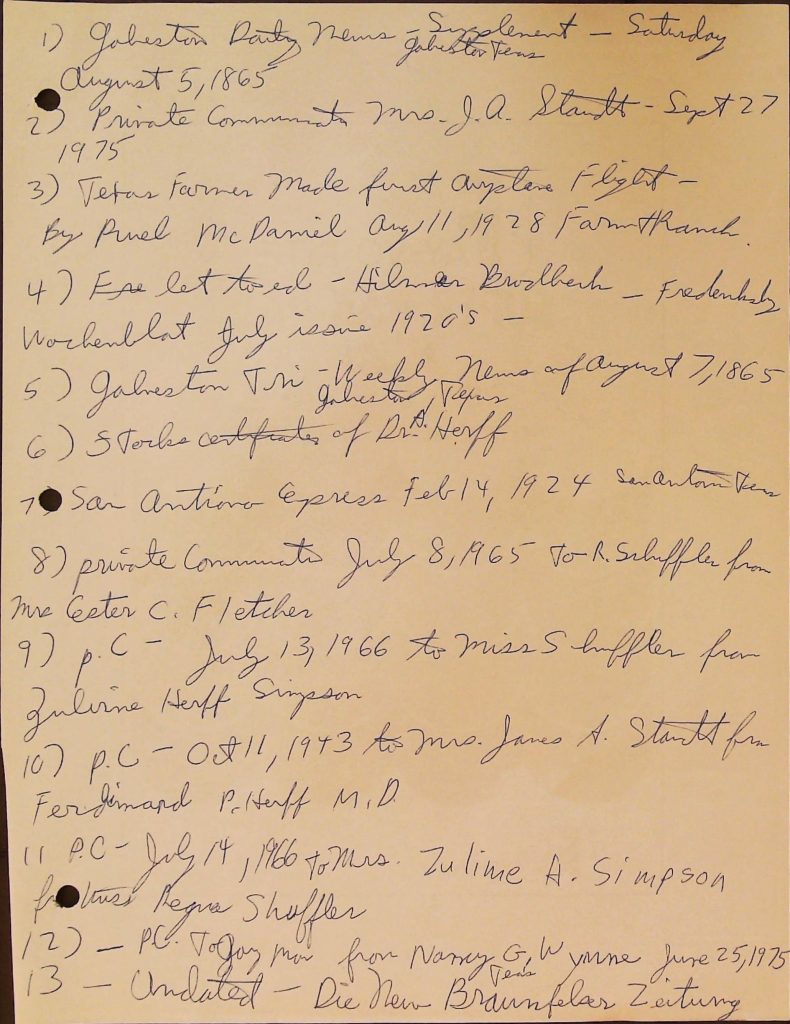 1) Galveston Daily News - Supplement - Saturday
Galveston Texas
August 5, 1865
2) Private Communicatn Mrs. J.A. Staudt - Sept 27
1975
3) Texas Farmer Made first Airplane Flight -
By Ruel McDaniel Aug 11, 1928 Farm + Ranch.
4) let to ed - Hilmar Brodbeck - Fredericksbg
Wochenblat July issue 1920's -
5) Galveston Tri-Weekly News of August 7, 1865
Galveston, Texas
6) Stocks certificates of Dr. A. Herff
7) San Antiono Express Feb 14, 1924 San Antonio Texas
8) private Communicatn July 8, 1965 To R. Schuffler from
Mrs Ester C. Fletcher
9) p.C - July 13, 1966 to Miss Shuffler from
Zulime Herff Simpson
10) p.C - Oct 11, 1943 to Mrs. James A. Staudt from
Ferdinand P. Herff M.D.
11 P.C - July 14, 1966 To Mrs. Zulime A. Simpson
from Miss Regna Shuffler
12) - P.C. To from Nancy G. Wynne June 25, 1975
Texas
13 - Undated - Die New Braunfelser Zeitung